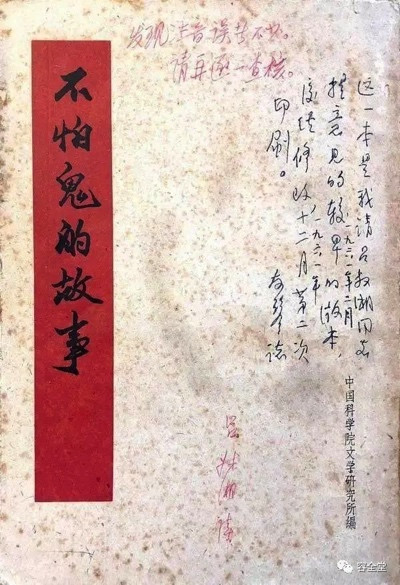 不怕鬼的故事
发现注音误不少。
请再逐一查核。
这一本是我请吕叔湘同志
一九六一年二月
提意见的较早的版本，
后续修改十二月第二次
一九六一年
印刷。
友琴志
中国科学院文学研究所编
吕叔湘读
容全堂